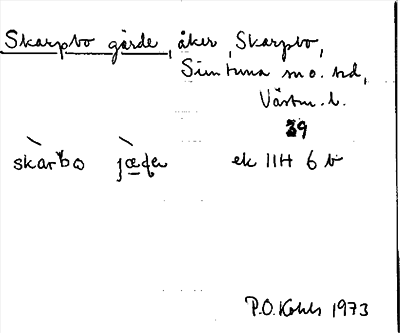 Skarpbo gärde, åker, Skarpbo,
Simtuna sn o. hd,
Västm. l.
39
skarbo
ek 11H 6 b
P.O. Kohls 1973